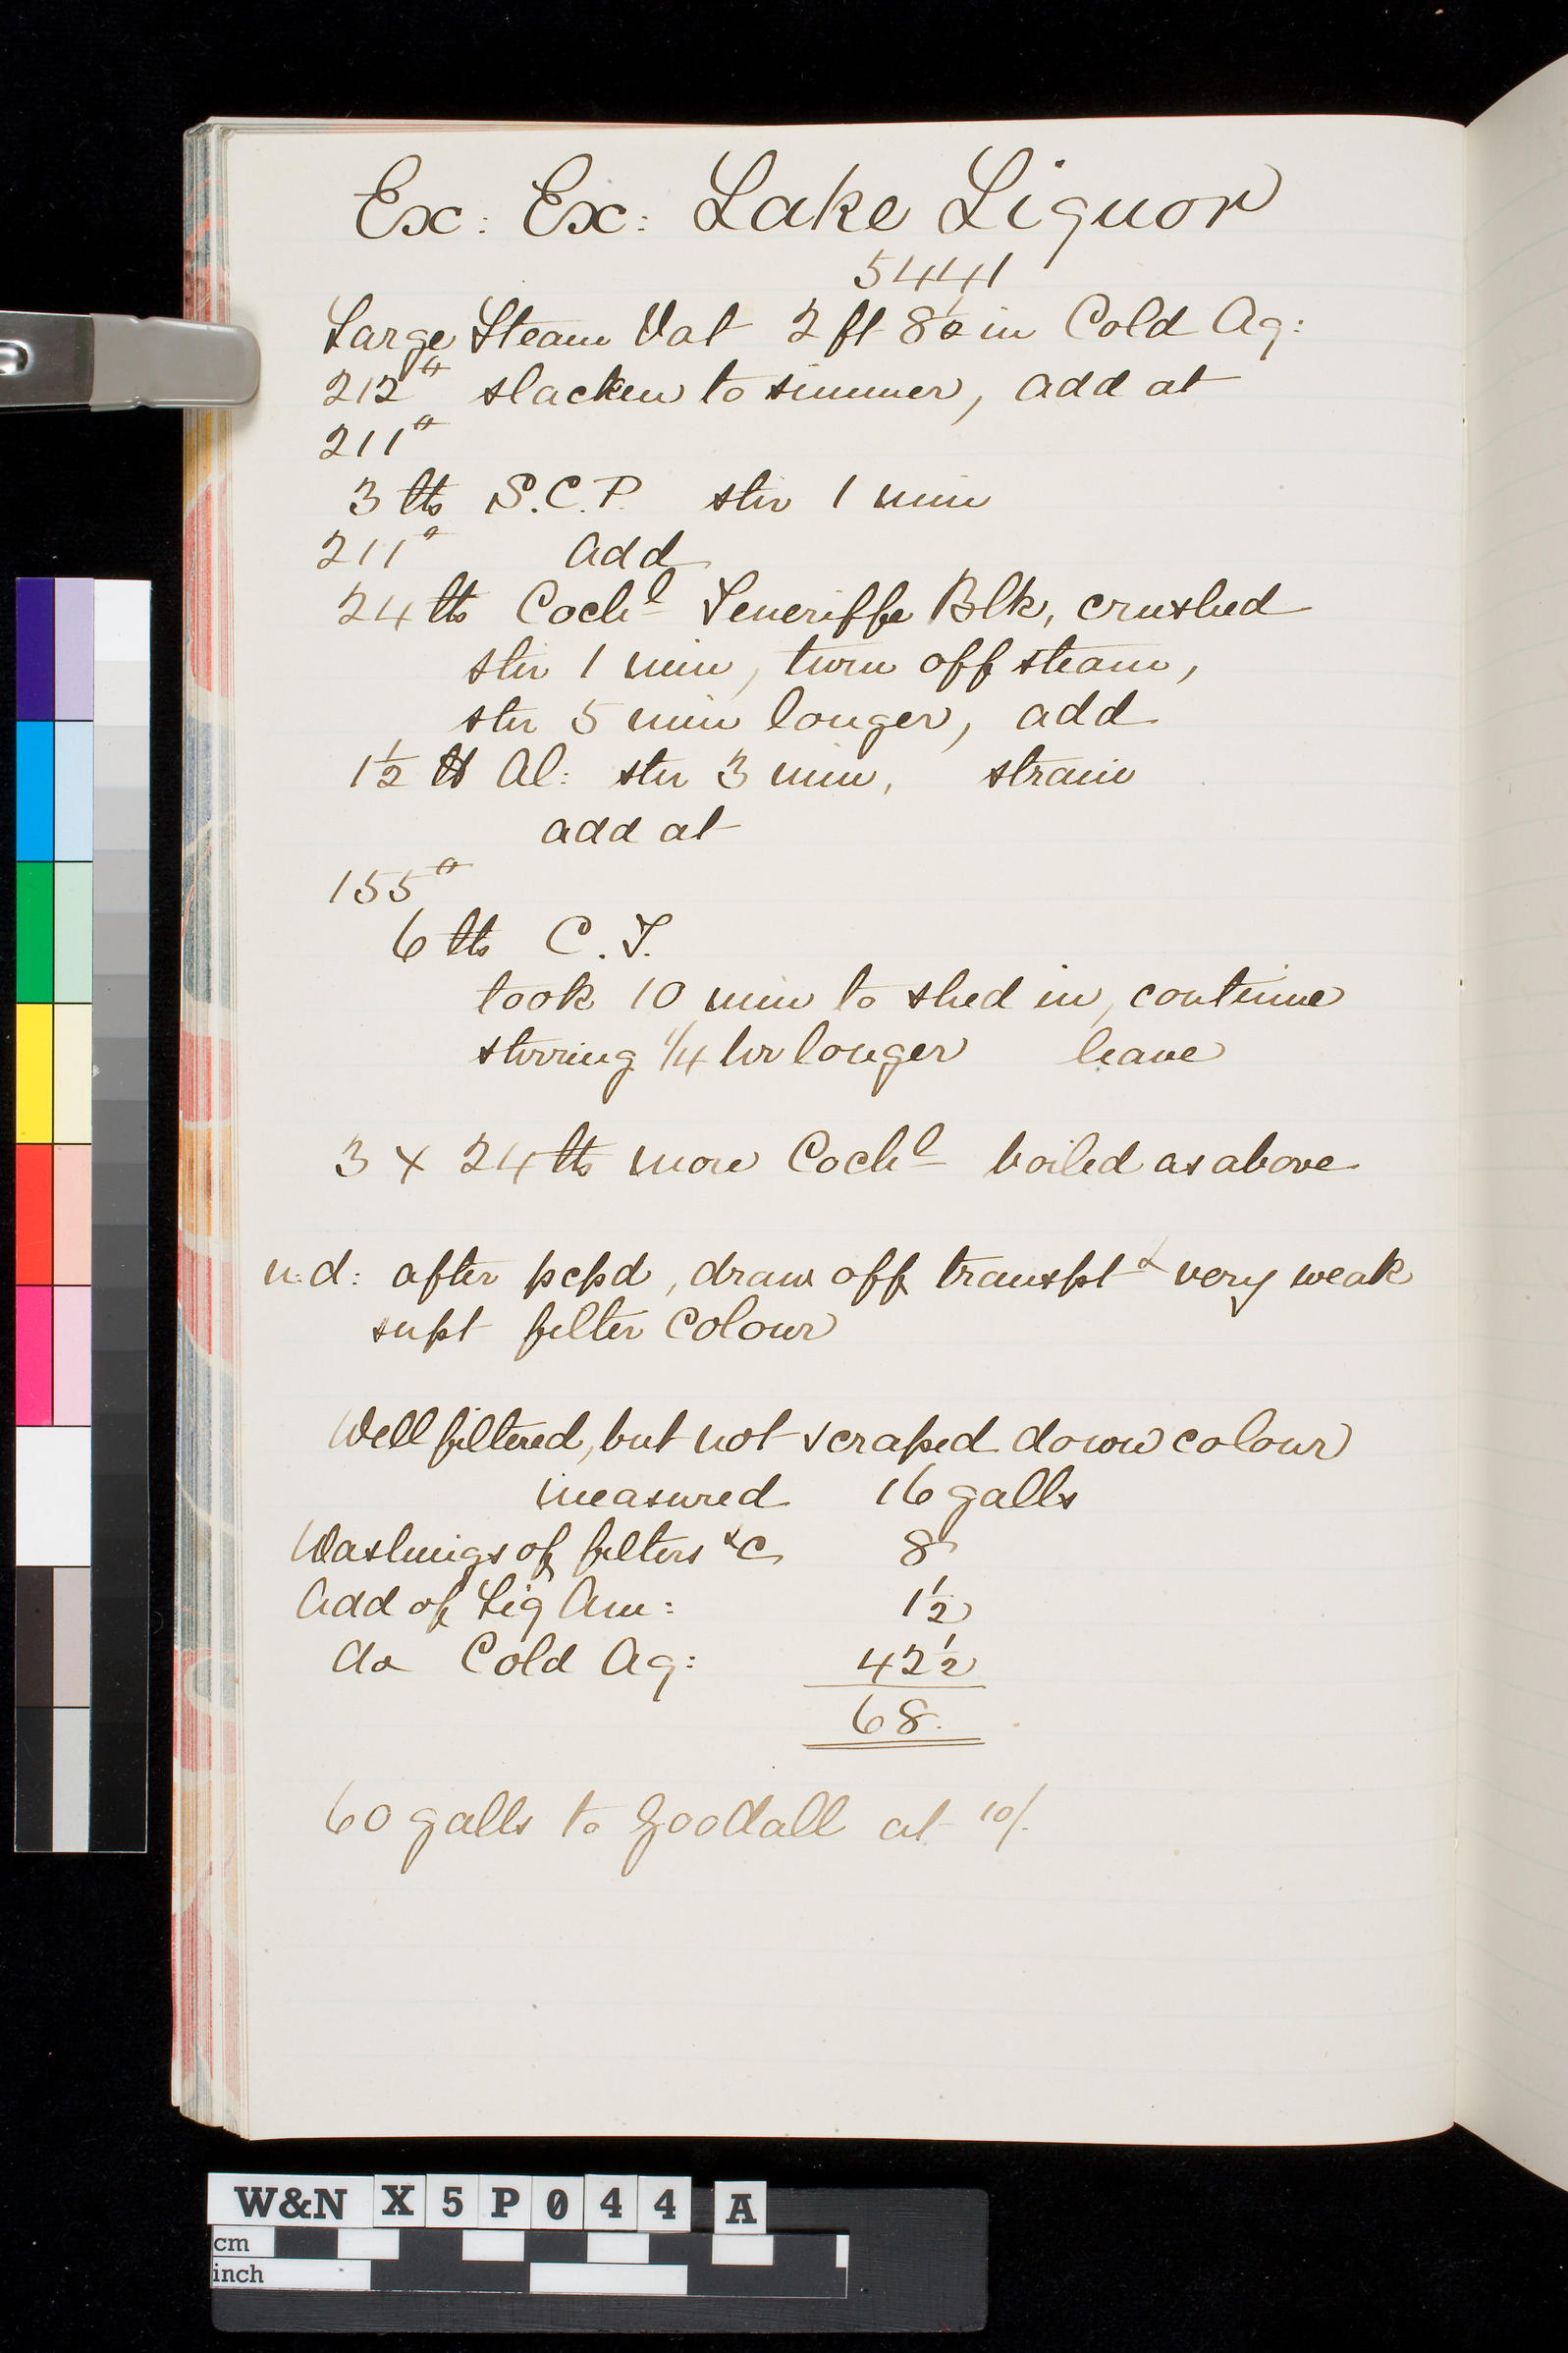 Ex: Ex: Lake Liquor
5441
Large Steam Vat 2 ft 8½ in Cold Aq:
212° slacken to simmer, add at
211°
3 lbs S.C.P. stir 1 min
211° add
24 lbs Cochl Teneriffe Blk, crushed
stir 1 min, turn off steam,
stir 5 min longer, add
1½ lb Al: stir 3 min, strain
add at
155°
6 lbs C.T.
took 10 min to shed in, continue
stirring 1/4 hr longer leave
3 x 24 lbs more Cochl boiled as above
n:d: after pcpd, draw off transpt & very weak
supt filter colour
Well filtered, but not scraped down colour
measured 16 galls
Washings of filters &c 8
Add of Liq Am: 1½
do Cold Aq: 42½
68.
60 galls to Goodall at 10/.
W&N X5P044 A
cm
inch